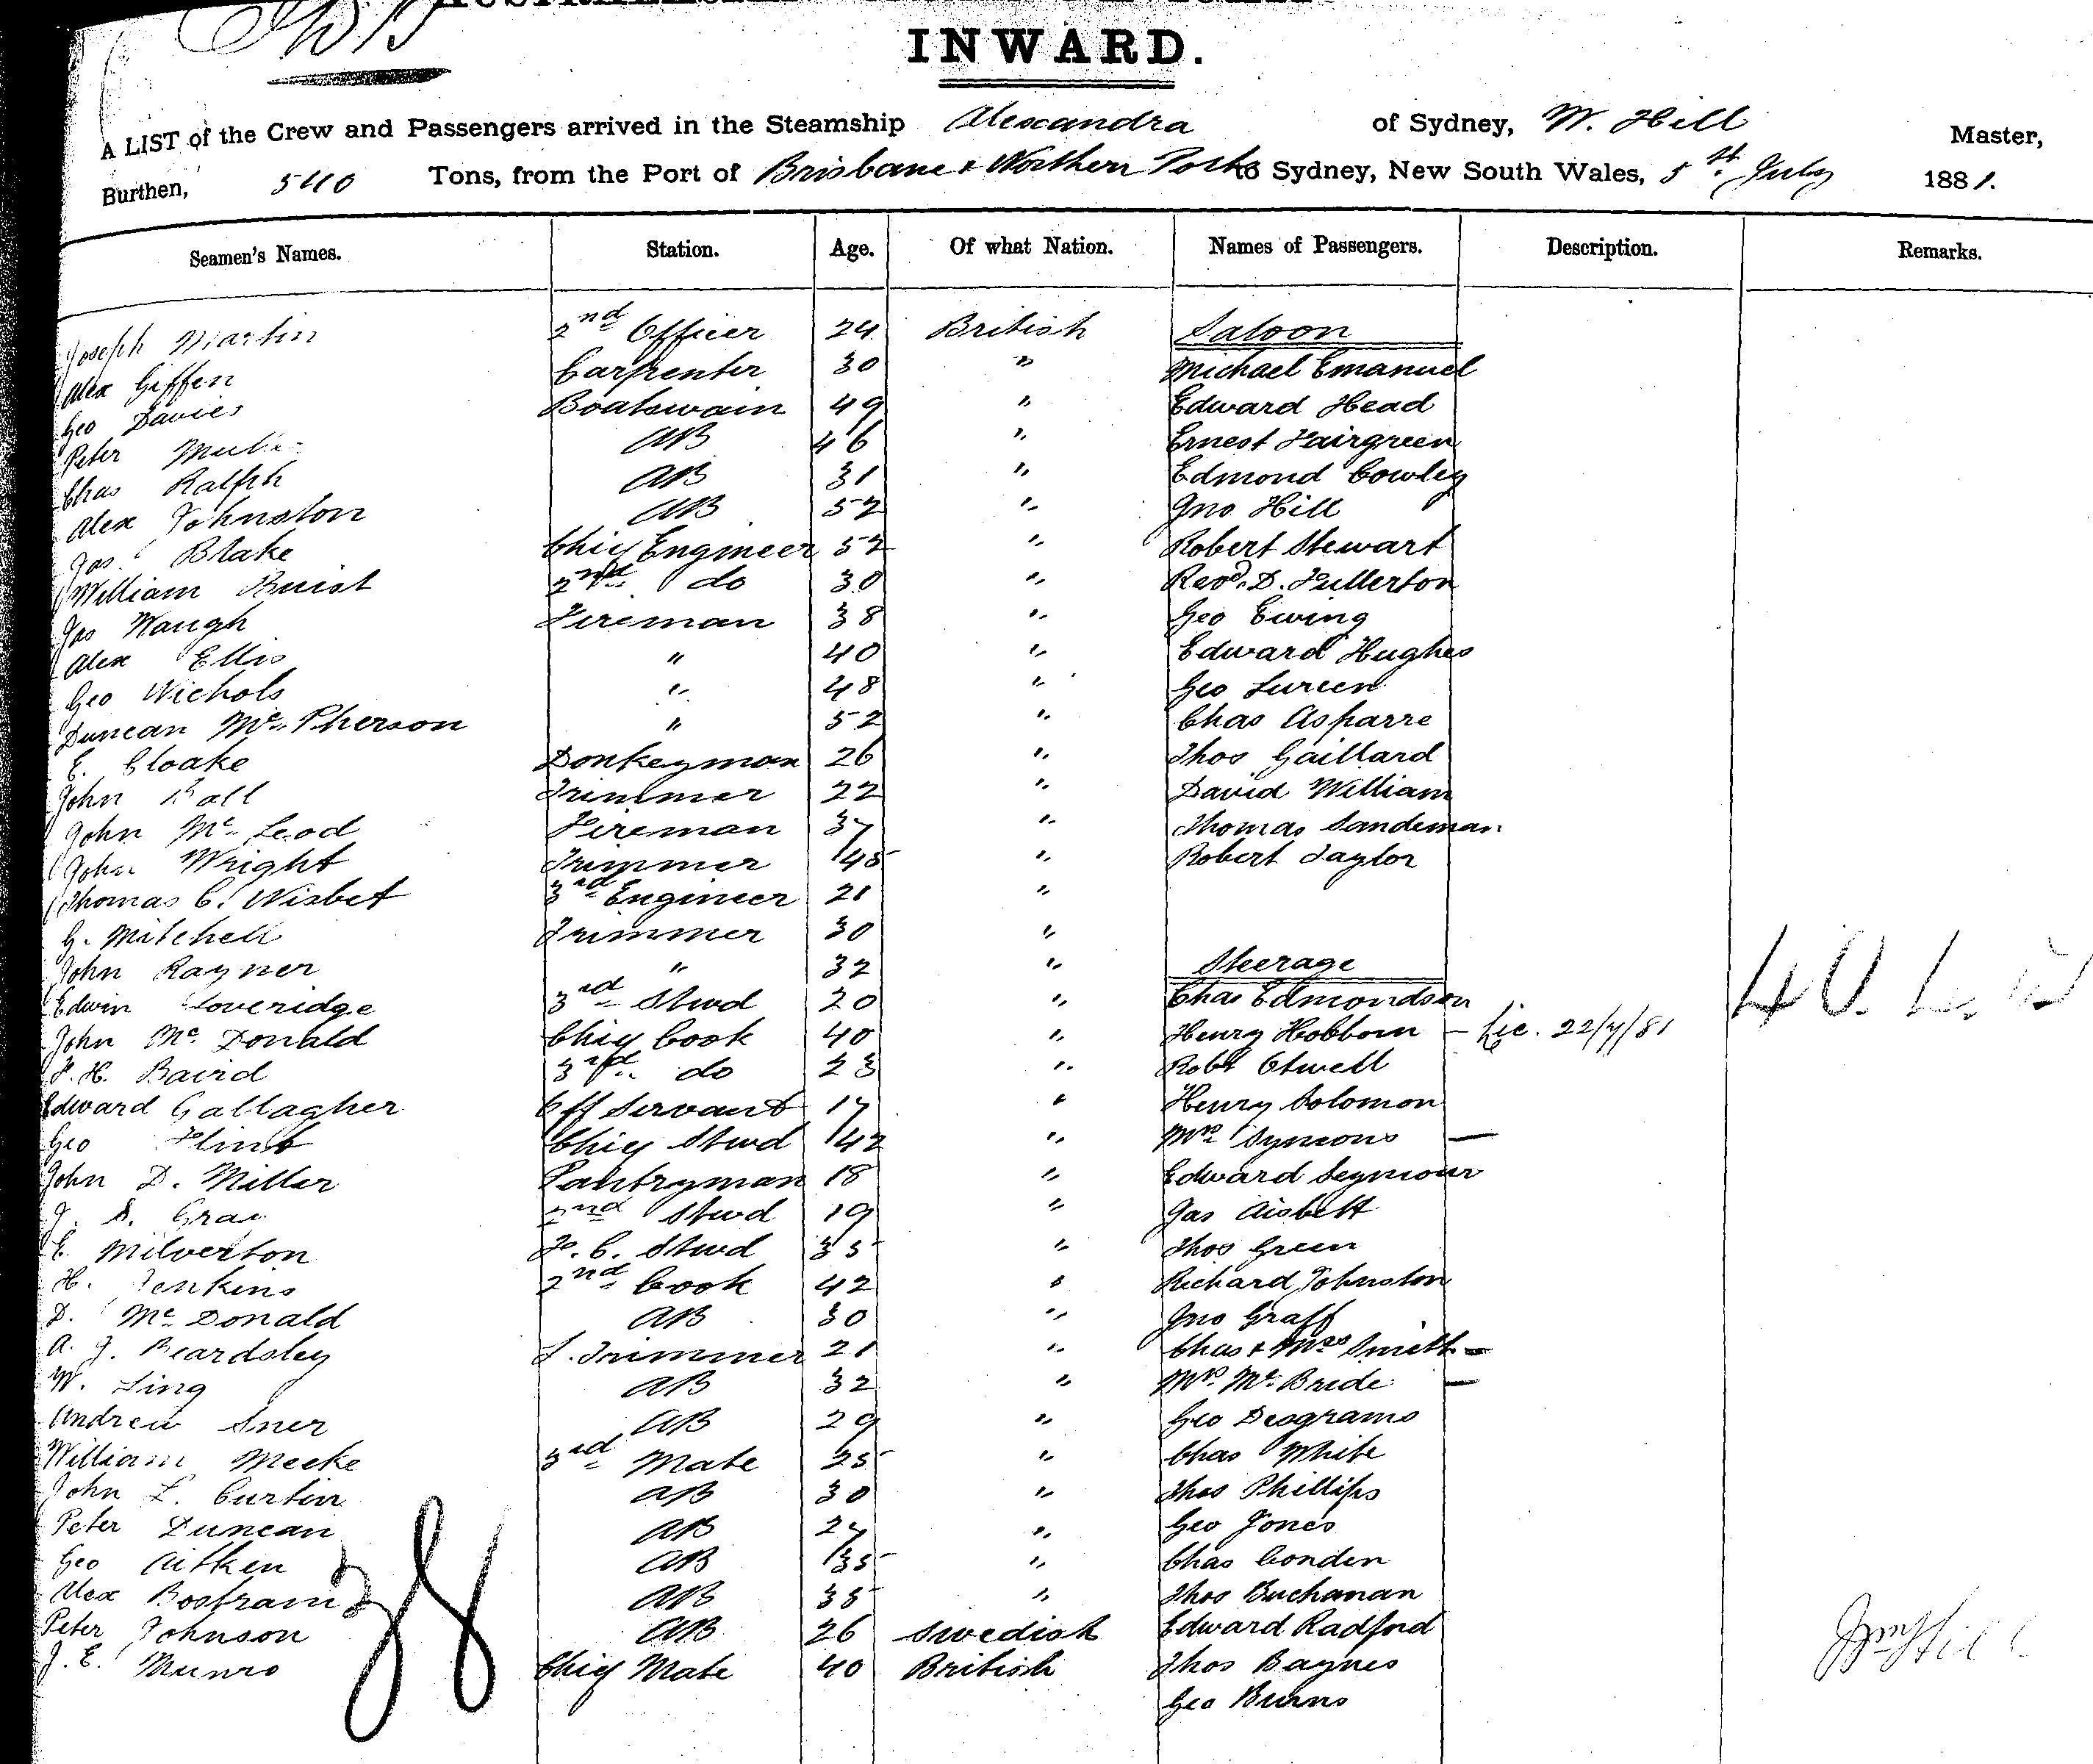 INWARD.
A LIST of the Crew and Passengers arrived in the Steamship Alexandra of Sydney, W. Hill Master,
Burthen, 540 Tons, from the Port of Brisbane & Northern Ports to Sydney, New South Wales, 5th July 1881.
Seamen's Names. Station. Age. Of what Nation. Names of Passengers. Description. Remarks.
Joseph Martin 2nd Officer 24 British Saloon
Alex Giffen Carpenter 30 " Michael Emanuel
Geo Davies Boatswain 49 " Edward Head
Peter AB 46 " Ernest Fairgreen
Chas Ralph AB 31 " Edmond Cowley
Alex Johnston AB 52 " Jno Hill
Jas Blake Chief Engineer 52 " Robert Stewart
William Buist 2nd do 30 " Revd. D. Fullerton
Jas Waugh Fireman 38 " Geo Ewing
Alex Ellis " 40 " Edward Hughes
Geo Nichols " 48 " Geo
Duncan McPherson " 52 " Chas Asparre
E. Cloake Donkeyman 26 " Thos Gaillard
John Ball Trimmer 22 " David William
John McLeod Fireman 37 " Thomas Sandeman
John Wright Trimmer 45 " Robert Taylor
Thomas C. Nisbet 3rd Engineer 21 "
G. Mitchell Trimmer 30 "
John Rayner " 32 " Steerage
Edwin Loveridge 3rd Stwd 20 " Chas Edmondson
John McDonald Chief Cook 40 " Henry Hobborn - Lic. 22/7/81
F. H. Baird 3rd do 23 " Robt Otwell
Edward Gallagher Off Servant 17 " Henry Solomon
Geo Flint Chief Stwd 42 " Mrs Symons —
John D. Miller Pantryman 18 " Edward Seymour
J. S. Gray 2nd Stwd 19 " Jas Aisbett
E. Milverton F. C. Stwd 35 " Thos Green
H. Jenkins 2nd Cook 42 " Richard Johnston
D. McDonald AB 30 " Jno Graff
A. J. Beardsley L. Trimmer 21 " Chas & Mrs Smith —
W. Ling AB 32 " Mrs McBride —
Andrew Iner AB 29 " Geo Deograms
William Meeke 3rd Mate 25 " Chas White
John L. Curtin AB 30 " Thos Phillips
Peter Duncan AB 27 " Geo Jones
Geo Aitken AB 35 " Chas Conden
Alex Bostram AB 35 " Thos Buchanan
Peter Johnson AB 26 Swedish Edward Radford
J. E. Munro Chief Mate 40 British Thos Baynes
Geo Burns
Wm Hill